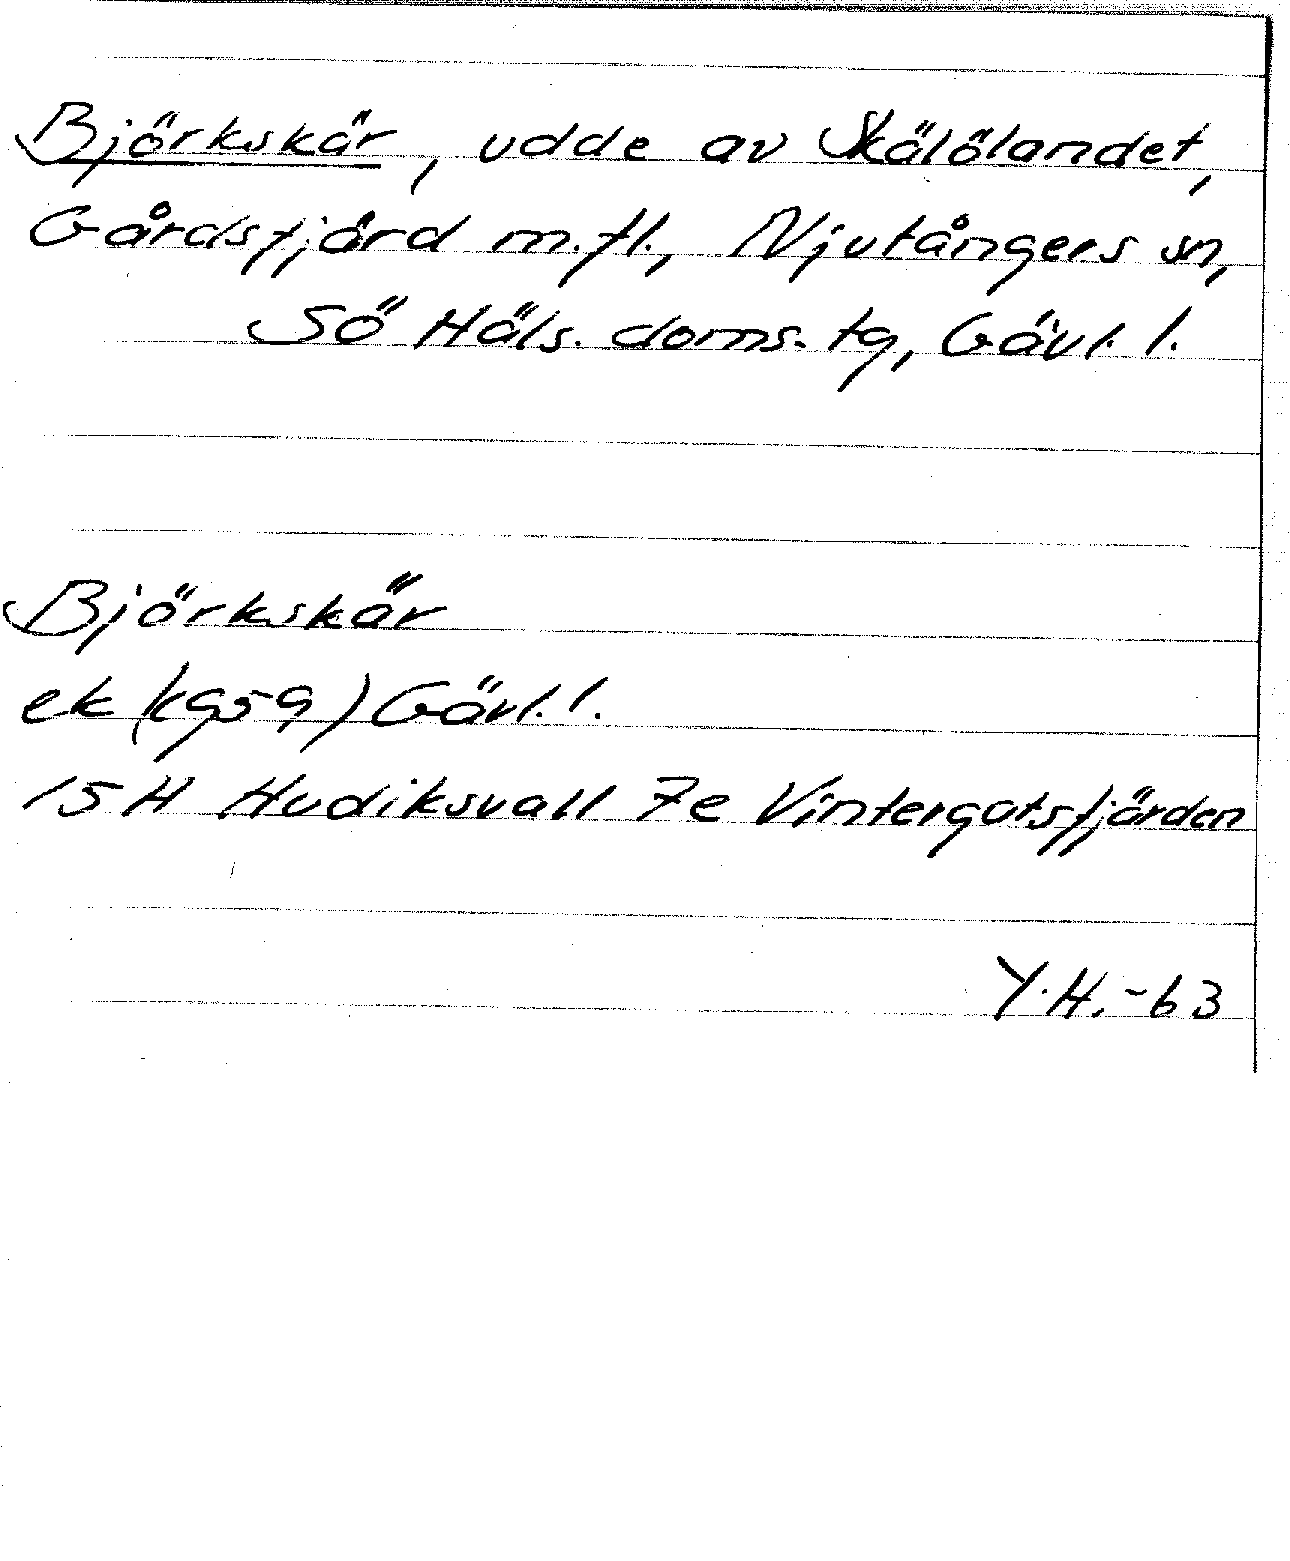 Björkskär, udde av Skälölandet,
Gårdsfjärd m.fl., Njutångers sn,
SÖ Häls. doms. tg, Gävl. l.
Björkskär
ek (1959) Gävl. l.
15 H Hudiksvall 7e Vintergatsfjärden
Y.H. -63